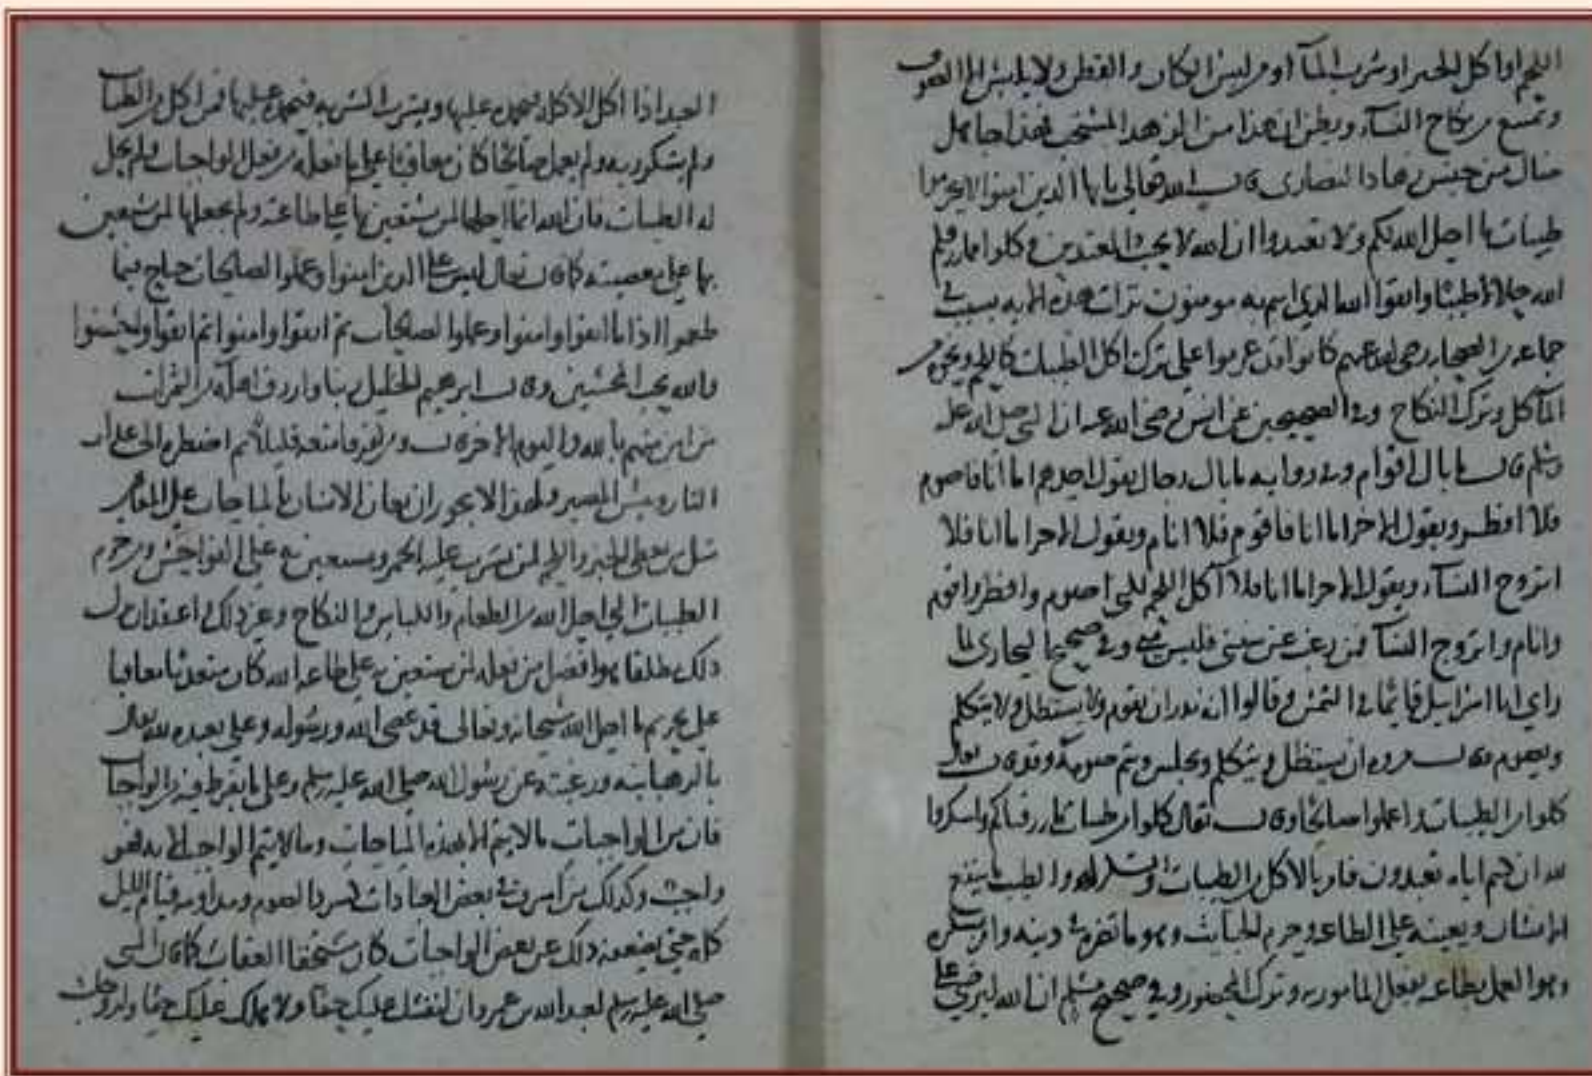 اللحم او اكل الخبز او شرب الماء او من لبس الكتان والقطن ولا يلبس الا الصوف
وتمتنع من نكاح النساء ويظن ان هذا من الزهد المستحب فهذا جاهل
ضال من جنس زهاد النصارى قال الله تعالى يا ايها الذين امنوا لا تحرموا
طيبات ما احل الله لكم ولا تعتدوا ان الله لا يحب المعتدين وكلوا مما رزقكم
الله حلالا طيبا واتقوا الله الذي انتم به مومنون نزلت هذه الايه بسبب
جماعه من الصحابه رضي الله عنهم كانوا قد عزموا على ترك اكل الطيبات كاللحم ونحوه من
المآكل وترك النكاح وفي الصحيحين عن انس رضي الله عنه ان النبي صلى الله عليه
وسلم قال ما بال اقوام وفي روايه ما بال رجال يقول احدهم اما انا فاصوم
فلا افطر ويقول الاخر اما انا فاقوم فلا انام ويقول الاخر اما انا فلا
اتزوج النساء ويقول الاخر اما انا فلا آكل اللحم لكني اصوم وافطر واقوم
وانام واتزوج النساء فمن رغب عن سنتي فليس مني وفي صحيح البخاري لما
راى ابا اسرائيل قائما في الشمس وقالوا انه نذر ان يقوم ولا يستظل ولا يتكلم
ويصوم قال مروه ان يستظل ويتكلم ويجلس ويتم صومه وقد قال تعالى
كلوا من الطيبات واعملوا صالحا وقال تعالى كلوا من طيبات ما رزقناكم واشكروا
لله ان كنتم اياه تعبدون فامر بالاكل من الطيبات والشكر لله والطيب ما ينفع
الانسان ويعينه على الطاعه وحرم الخبائث وهو ما تضره في دينه وامر بشكره
وهو العمل بطاعته بفعل المامور به وترك المحضور وفي صحيح مسلم ان الله ليرضى على
العبد اذا اكل الاكله فيحمده عليها ويشرب الشربه فيحمده عليها فمن اكل من الطيبات
ولم يشكر ربه ولم يعمل صالحا كان معاقبا على ما فعله من فعل الواجبات ولم يحل
له الطيبات فان الله انما احلها لمن يستعين بها على طاعته ولم يجعلها لمن يستعين
بها على معصيته كما قال تعالى ليس على الذين امنوا وعملوا الصالحات جناح فيما
طعموا اذا ما اتقوا وامنوا وعملوا الصالحات ثم اتقوا وامنوا ثم اتقوا واحسنوا
والله يحب المحسنين وقال ابرهيم الخليل ربنا وارزق اهله من الثمرات
من امن منهم بالله واليوم الاخر قال ومن كفر فامتعه قليلا ثم اضطره الى عذاب
النار وبئس المصير ولهذا لا يجوز ان يعان الانسان بالمباحات على المعاصي
مثل من يعطي الخبز واللحم لمن يشرب عليه الخمر ويستعين به على الفواحش ومن حرم
الطيبات التي احل الله من الطعام واللباس والنكاح وغير ذلك واعتقد ان ترك
ذلك مطلقا هو افضل من فعله لمن يستعين به على طاعه الله كان معتديا معاقبا
على تحريم ما احل الله سبحانه وتعالى فقد عصى الله ورسوله وعلى تعبده لله تعالى
بالرهبانيه ورغبته عن رسول الله صلى الله عليه وسلم وعلى ما يفرط فيه من الواجبات
فان من الواجبات ما لا يتم الا بهذه المباحات وما لا يتم الواجب الا به فهو
واجب وكذلك من اسرف في بعض العبادات كسرد الصوم ومداومه قيام الليل
كله حتى يضعفه ذلك عن بعض الواجبات كان مستحقا العقاب كما قال النبي
صلى الله عليه وسلم لعبد الله بن عمرو ان لنفسك عليك حقا ولاهلك عليك حقا ولزوجك